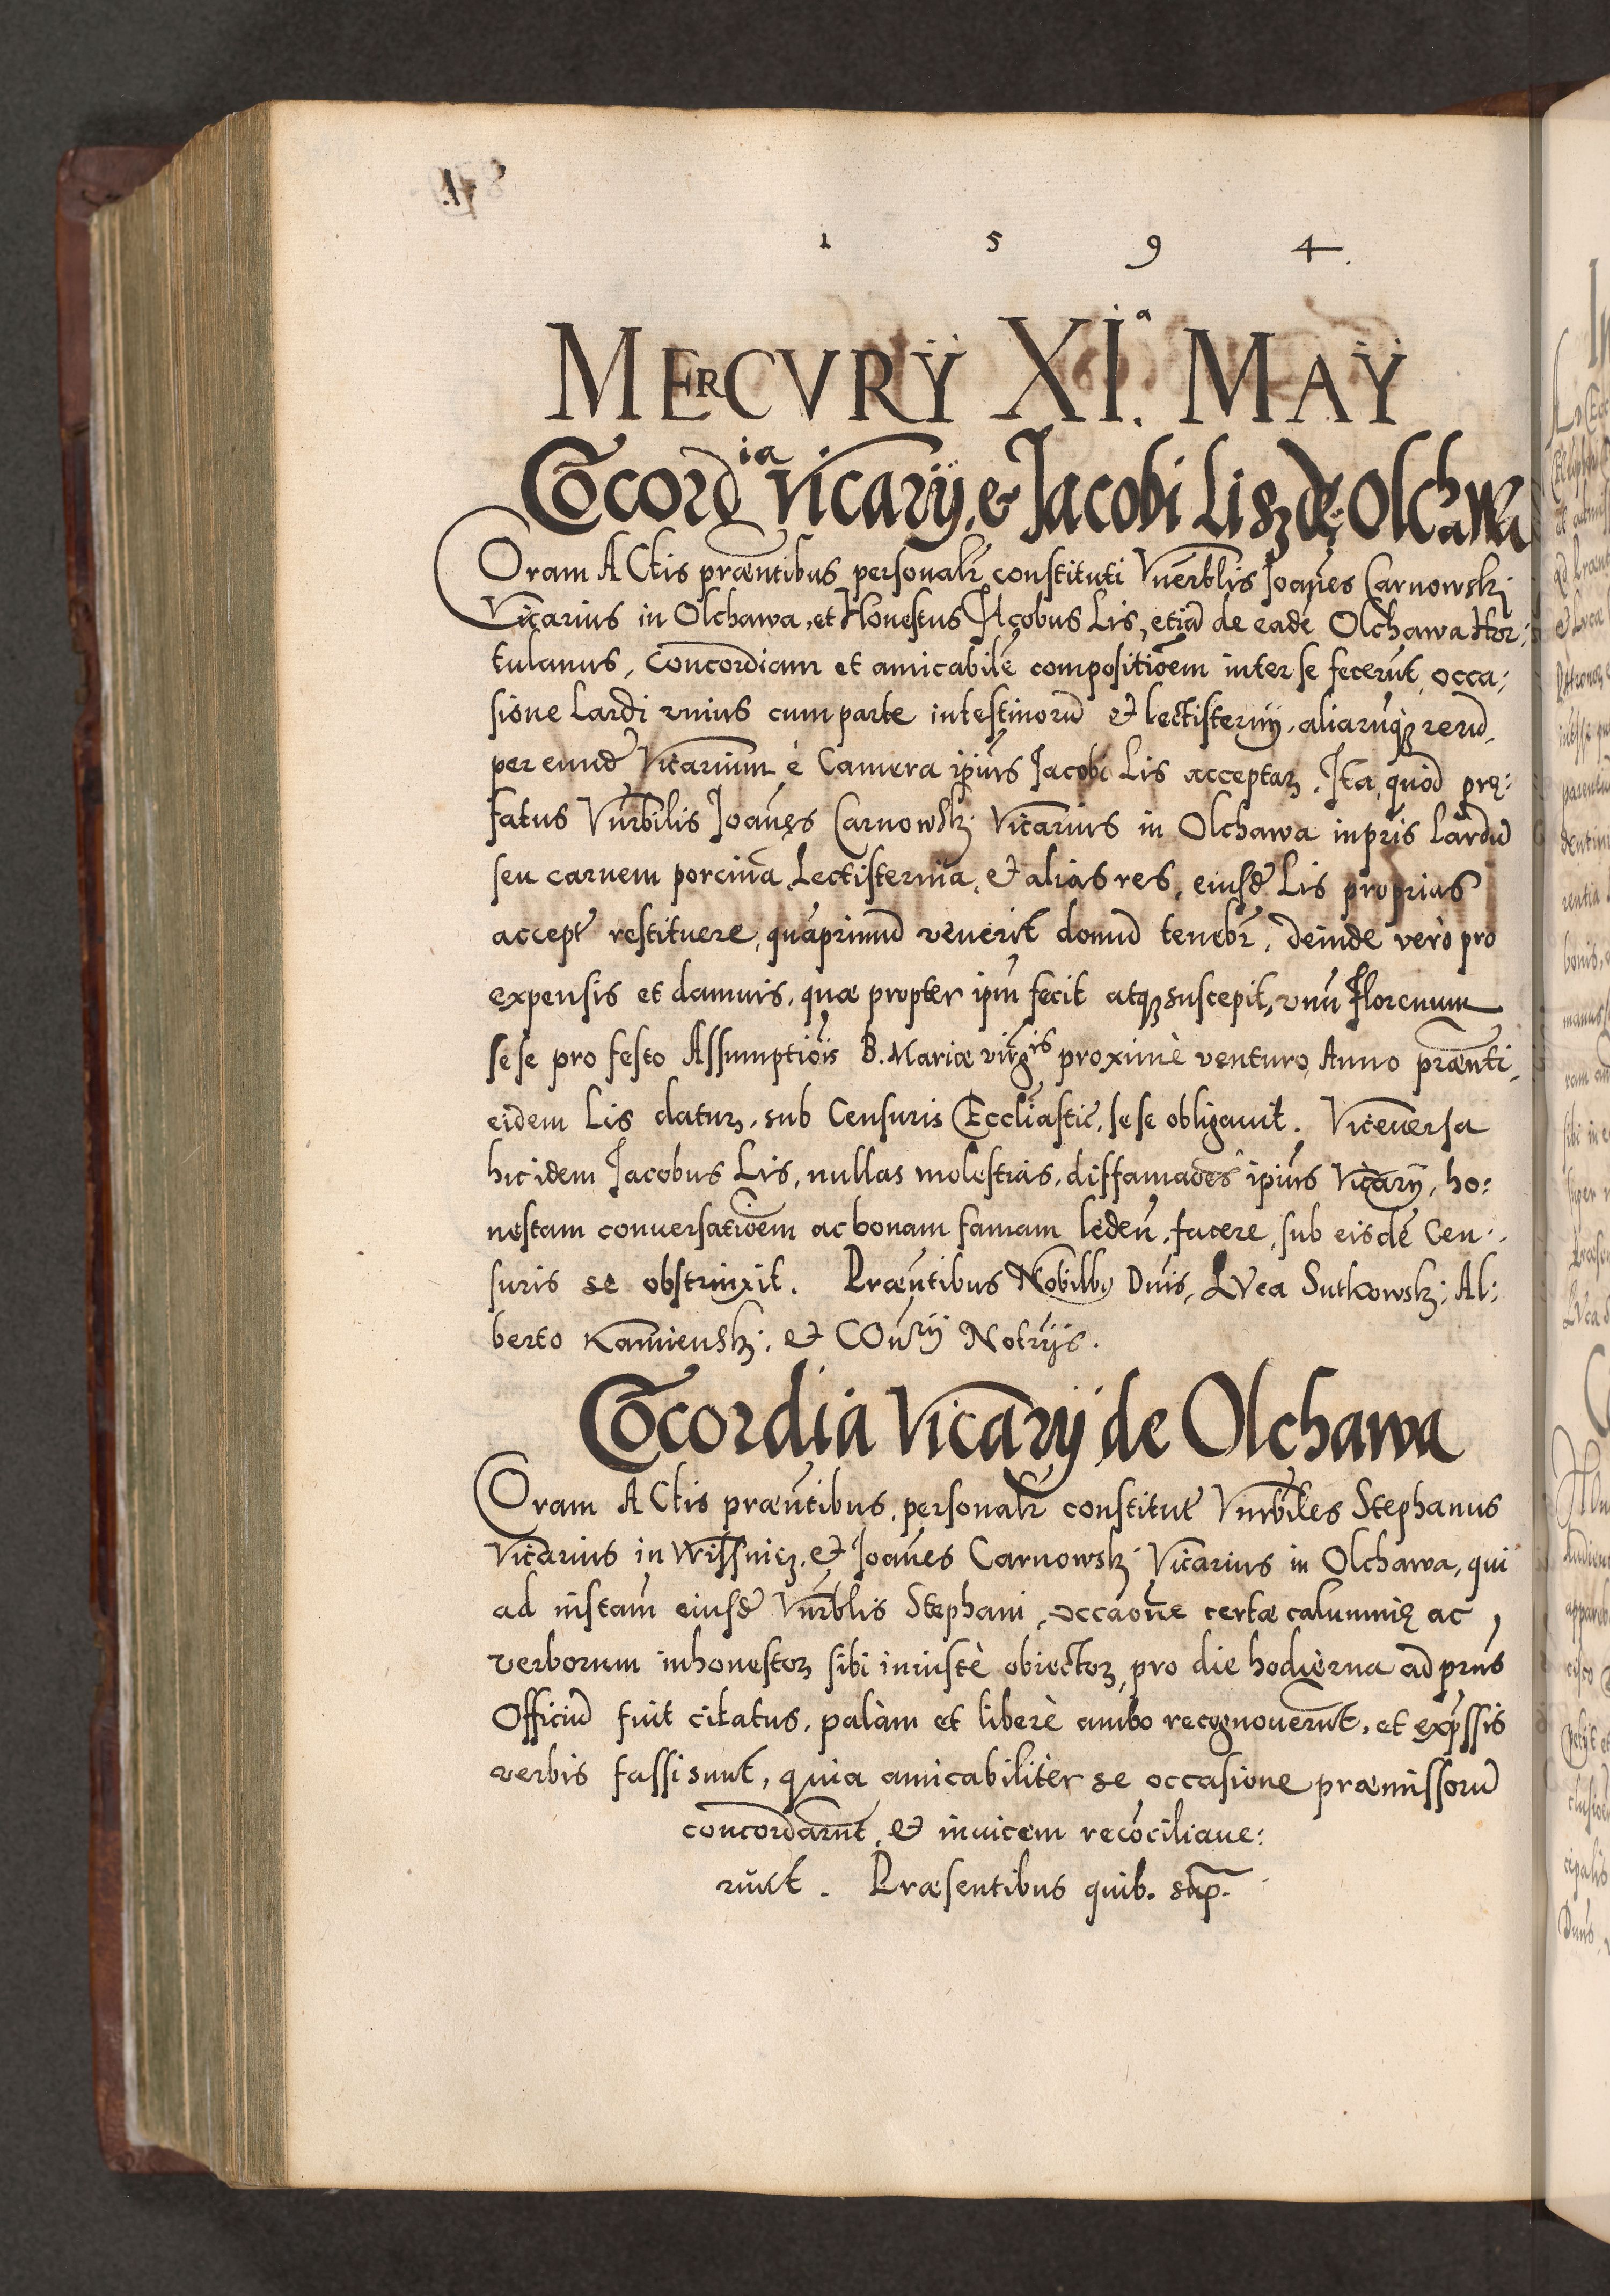 1 5 9 4.
MErCVRŸ XI.ª MAŸ
Cōcordia Vicarÿ, & Jacobi Lisz de Olchawa
Coram ACtis præntibus personalr constituti Vnerblis Joańes Carnowskj
Vicarius in Olchawa, et Honestus JAcobus Lis, etiā de eadē Olchawa Hor:
tulanus, Concordiam et amicabilē compositiōem inter se fecerūt, occa:
sione Lardi vnius cum parte intestinorū & lectisternÿ, aliarūqȝ rerū,
per eundē Vicarium è Camera ipīus Jacobi Lis acceptaȝ. Ita, quòd prę:
fatus Vnrbilis Joańes Carnowskj Vicarius in Olchawa inpris Lardū
seu carnem porcinā, Lectisternia, & alias res, eiusdē Lis proprias
accept restituere, quāprimū venerit domū tenebr. deinde verò pro
expensis et damnis, quæ propter ipm̄ fecit atqȝ suscepit, vnū Florenum
sese pro festo Assumptiōis B. Mariæ virgis proximè venturo, Anno prænti,
eidem Lis daturȝ, sub Censuris Eccliastic̄, sese obligauit. Viceuersa
hic idem Jacobus Lis, nullas molestias, diffamaōes ipīus Vicarÿ, ho:
nestam conuersatiōem ac bonam famam ledeń, facere, sub eisdē Cen:
suris se obstrinxit. Præntibus Nobilbȝ Dnis, LVca Sutkowskj, Al:
berto Kamienskj, & COnsrÿ Notrÿs.
Cōcordia Vicarÿ de Olchawa
Coram ACtis præntibus, personalr constitut Vnrbiles Stephanus
Vicarius in Wissnicȝ, & Joańes Carnowskj Vicarius in Olchawa, qui
ad instam̄ eiusdē Vnrblis Stephani, occaōne certæ calumnię ac,
verborum inhonestoȝ sibi iniustè obiectoȝ, pro die hodierna ad prn̄s
Officiū fuit citatus, palàm et liberè ambo recognouerūt, et exprssis
verbis fassi sunt, quia amicabiliter se occasione præmissorū
concordarūt, & inuicem recōciliaue:
runt. Præsentibus quib. sup.